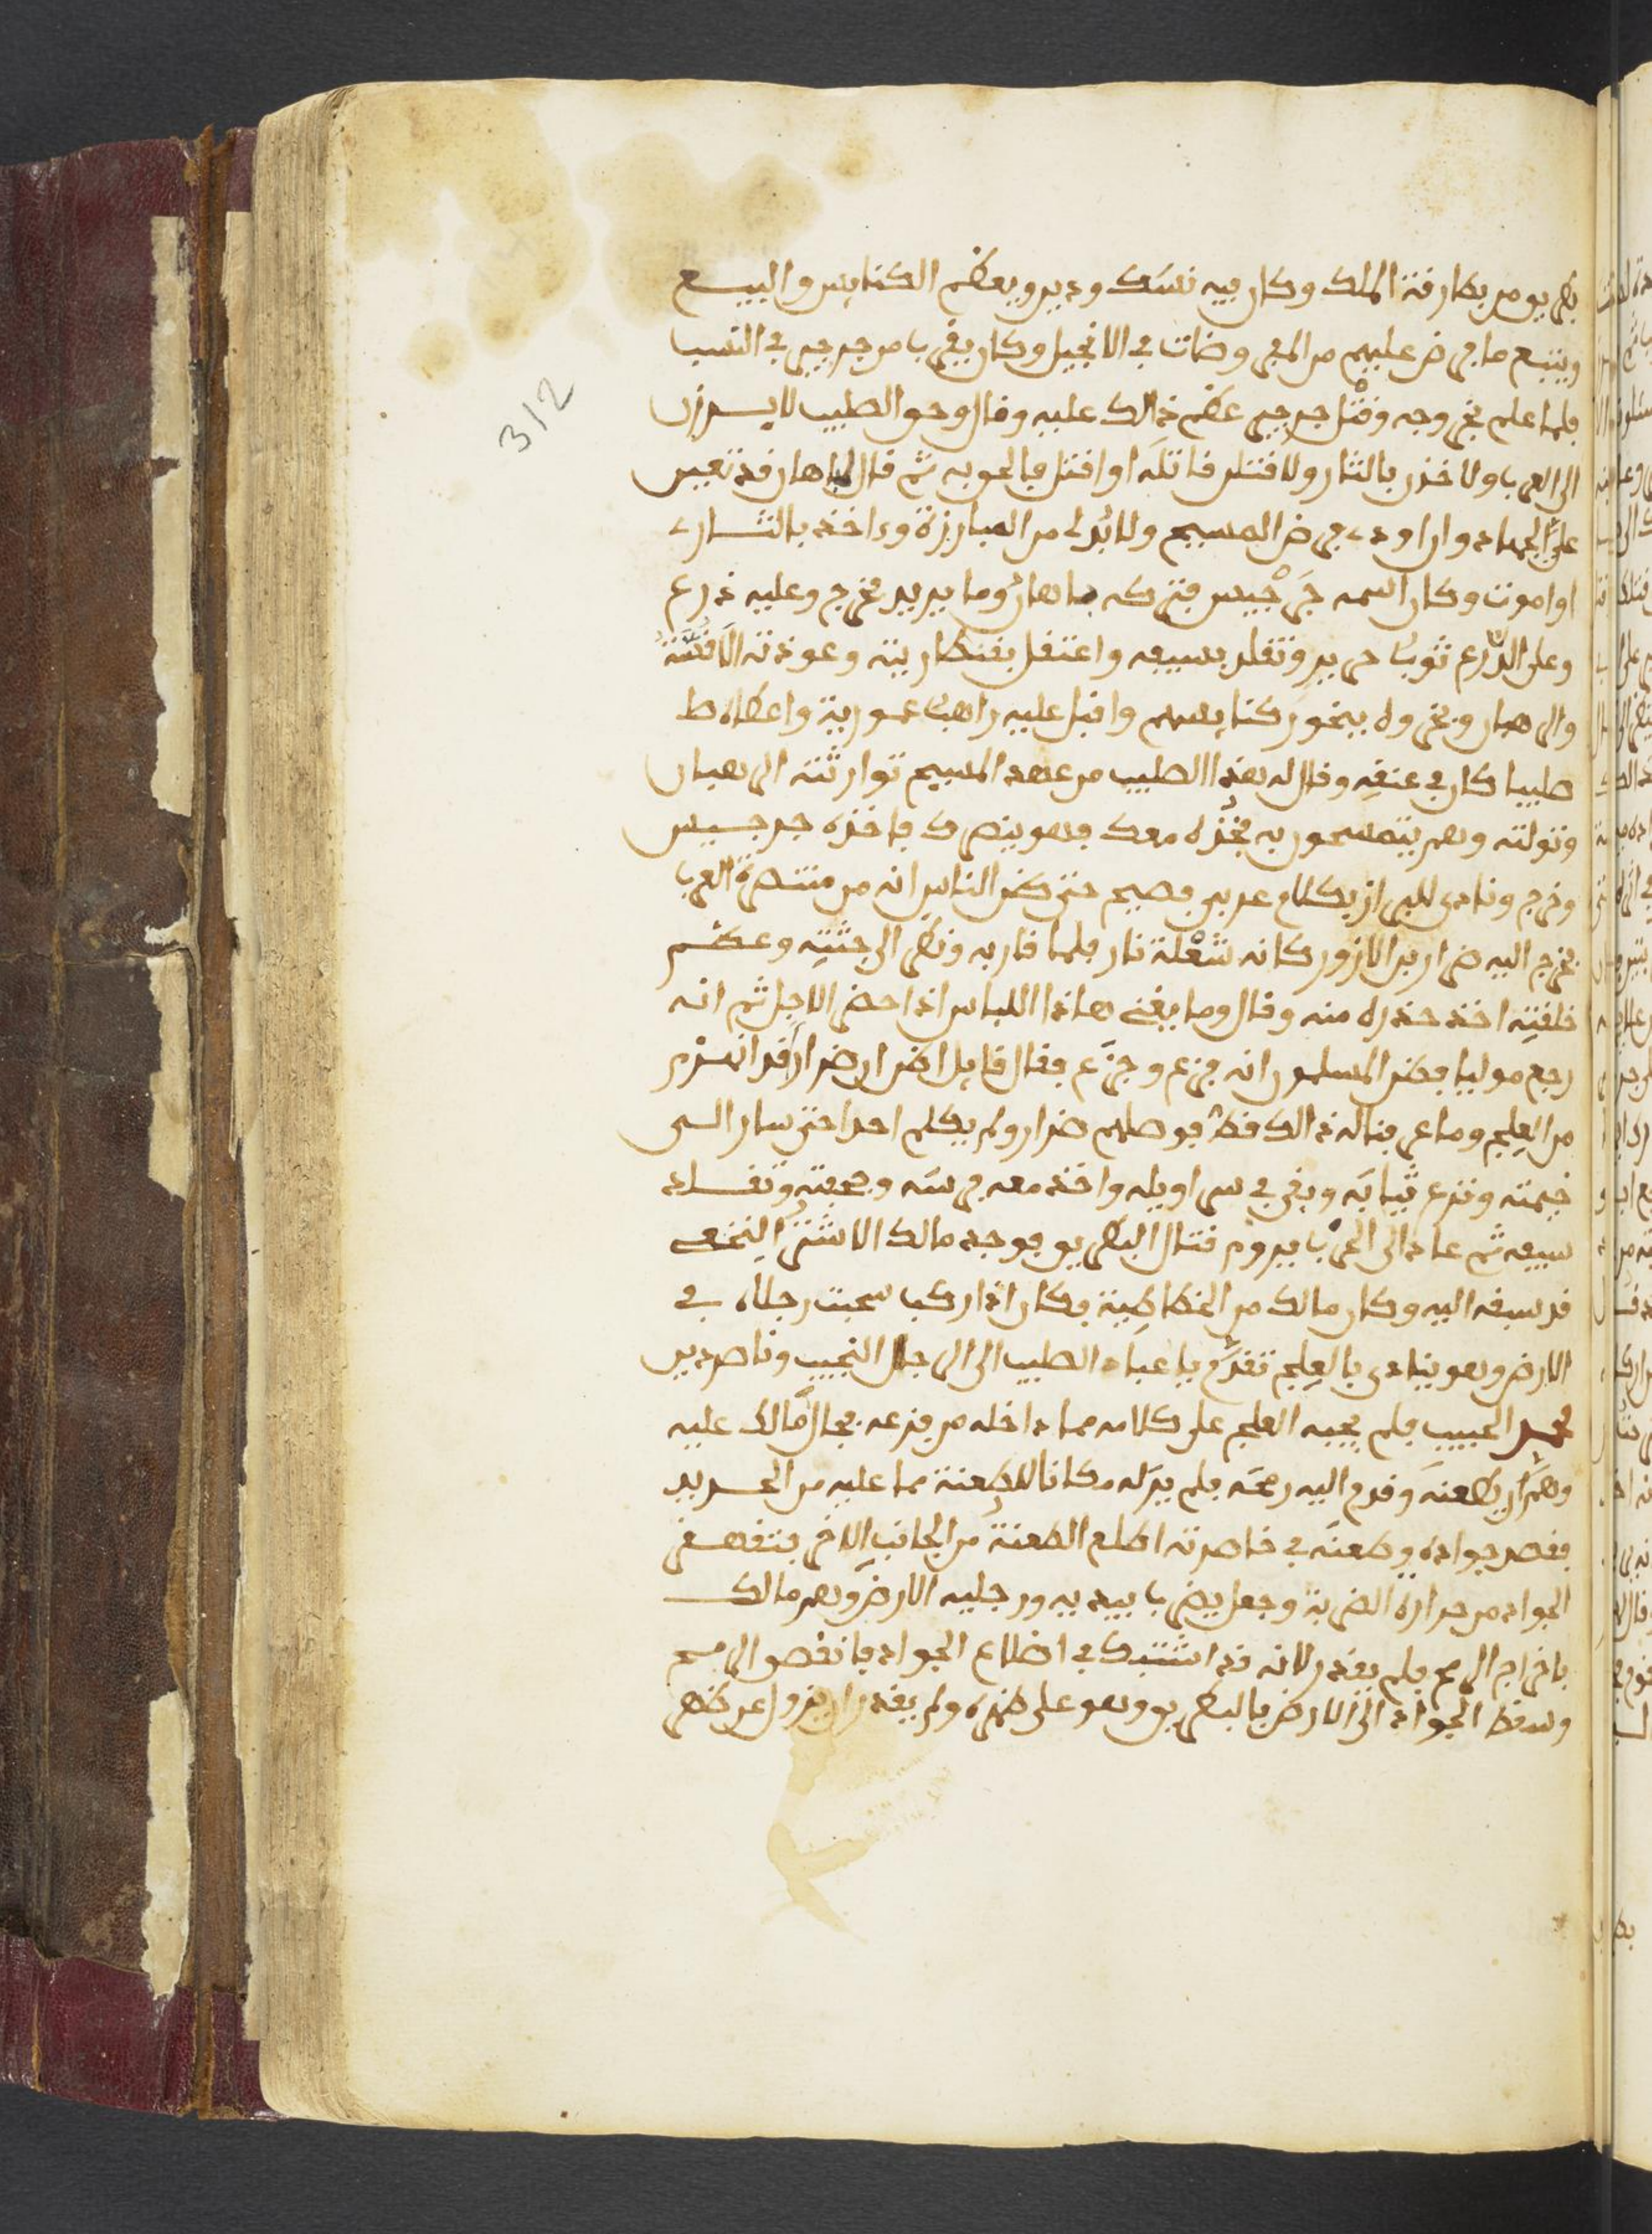 بطريو من بطارقة الملك وكان فيه نسك ودين ويعظم الكنايس والبيع
ويتبع ما جرض عليهم من المعروضات في الانجيل وكان يقرب من جرجير في النسب
فلما علم بخروجه وقتل جرجير عظم ذالك عليه وقال وحق الصليب لا يسرزن
الى العرب ولاخذن بالثار ولاقتلن قاتله او اقتل فالحق به ثم قال لماهان قد تعين
علي الجهاد وان اودي جرض المسيح ولا بد لي من المبارزة وءاخذ بالثار
او اموت وكان اسمه جرجيس فتركه ماهان وما يريد فخرج وعليه درع
وعلى الدرع ثوب حرير وتقلد بسيفه واعتقل بقنطاريته وعوذته الاقسة
والرهبان وبخروه ببخور كنايسهم واقبل عليه راهب عمورية واعطاه ط
صليبا كان في عنقه وقال له هذا الصليب من عهد المسيح توارثته الرهبان
وتولته وهم يتمسحون به فخذه معك فهو ينصرك فاخذه جرجيس
وخرج ونادى للبراز بكلام عربي فصيح حتى ظن الناس انه من متنصرة العرب
فخرج اليه ضرار بن الازور كانه شعلة نار فلما قاربه ونظر الى جثته وعظم
خلقته اخذ حذره منه وقال وما يغني هاذا اللباس اذا حضر الاجل ثم انه
رجع موليا فظن المسلمون انه فزع وجزع فقال قايل اظن ان ضرار قد انهزم
من العلج وما عرفنا له ذالك قط فوصلهم ضرار ولم يكلم احدا حتى سار الى
خيمته ونزع ثيابه وبقي في سراويله واخذ معه فرسه وجحفته وتقلد
سيفه ثم عاد الى الحرب يروم قتال البطريو فوجد مالك الاشتر النخعي
قد سبقه اليه وكان مالك من الخطاطية فكان اذا ركب سحبت رجلاه في
الارض وهو ينادي بالعلج تقدم يا عباد الصليب الى الرجل النجيب وناصر دين
محمد الحبيب فلم يجبه العلج على كلامه مما داخله من فزعه فجال مالك عليه
وهم ان يطعنه وقدم اليه رمحه فلم ير له مكانا للطعنة مما عليه من الحديد
فقصد جواده وطعنه في خاصرته اطلع الطعنة من الجانب الاخر فتقهقر
الجواد من حرارة الضربة وجعل يضرب بيديه ورجليه الارض وهم مالك
باخراج الرمح فلم يقدر لانه قد اشتبك في اضلاع الجواد فانقصف الرمح
وسقط الجواد الى الارض بالبطريو وهو على ظهره ولم يقدر ان ينزل عن ظهر
312